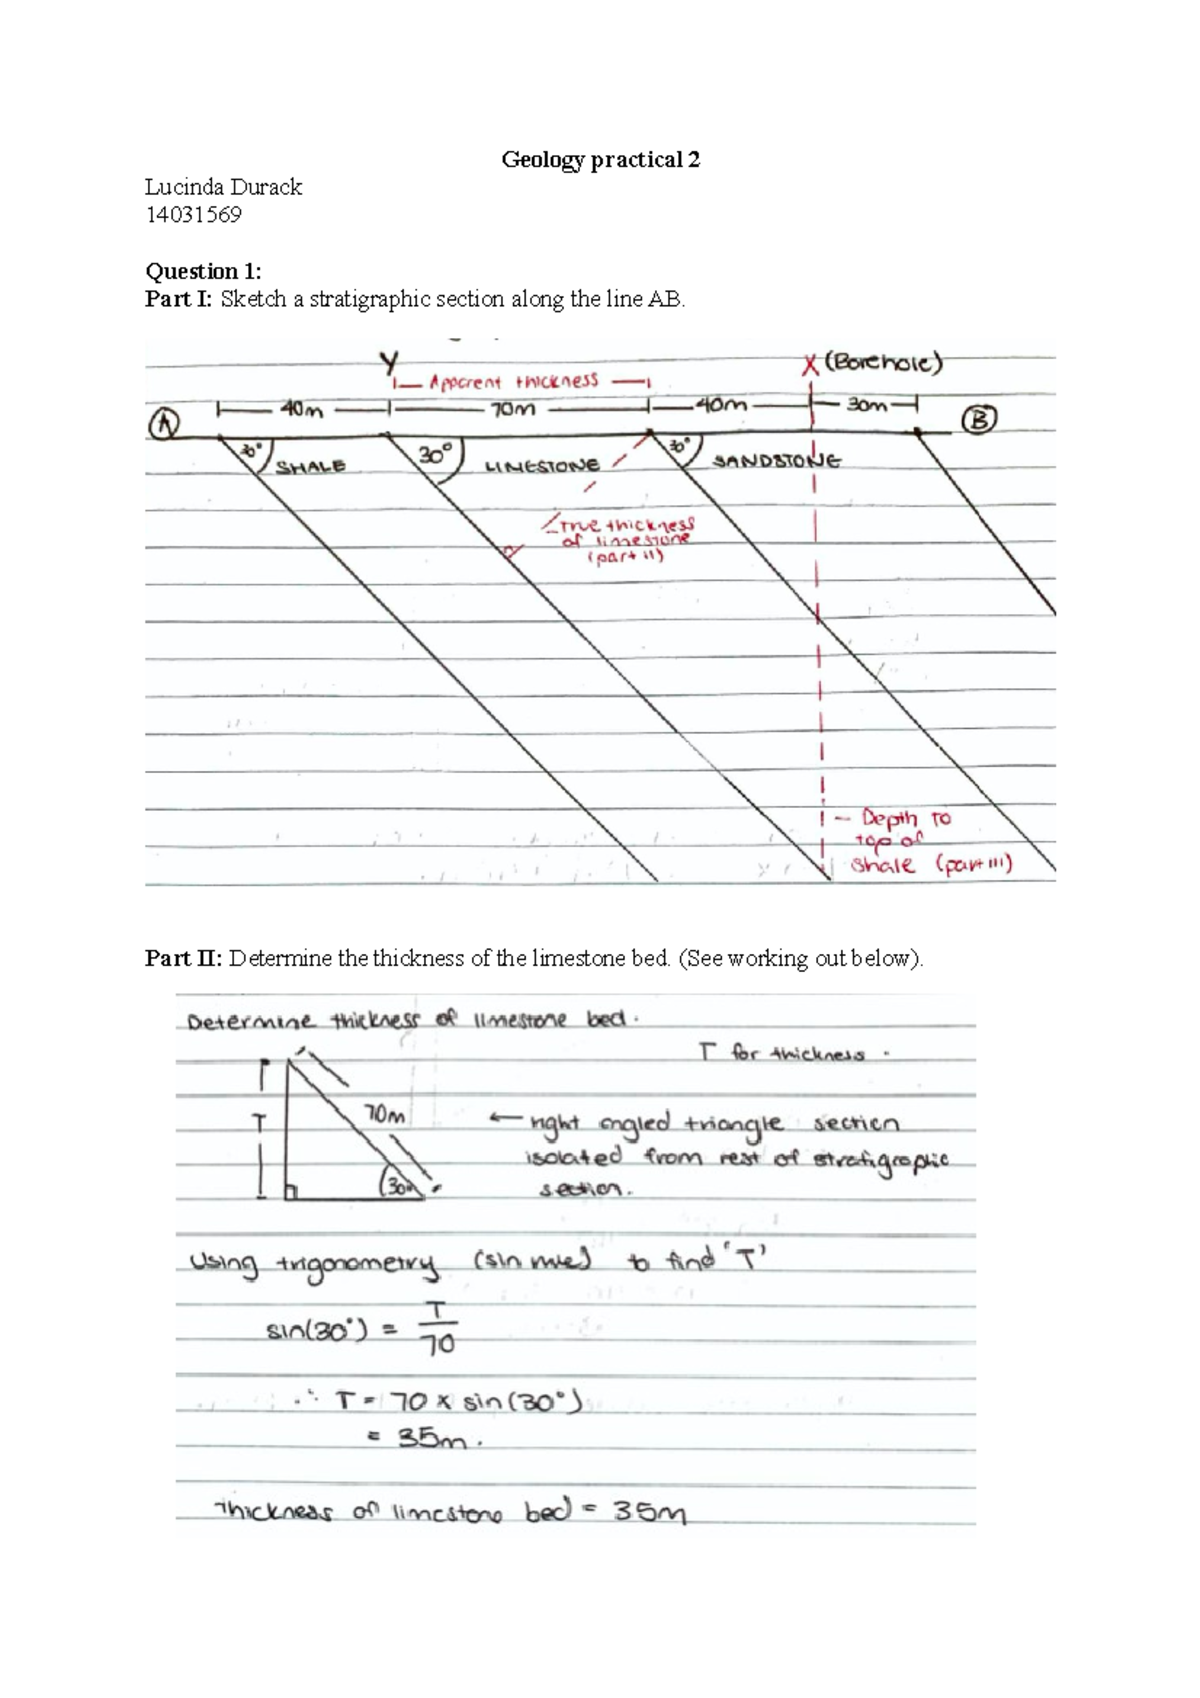 Geology practical 2
Lucinda Durack
14031569
Question 1:
Part I: Sketch a stratigraphic section along the line AB.
Y X (Borehole)
Apparent thickness
A 40m 70m 40m 30m B
30° SHALE 30° LIMESTONE 30° SANDSTONE
True thickness
of limestone
(part II)
Depth to
top of
shale (part III)
Part II: Determine the thickness of the limestone bed. (See working out below).
Determine thickness of limestone bed.
T for thickness.
T 70m ← right angled triangle section
isolated from rest of stratigraphic
30° section.
Using trigonometry (sin rule) to find 'T'
sin(30°) = T/70
∴ T = 70 x sin(30°)
= 35m.
Thickness of limestone bed = 35m